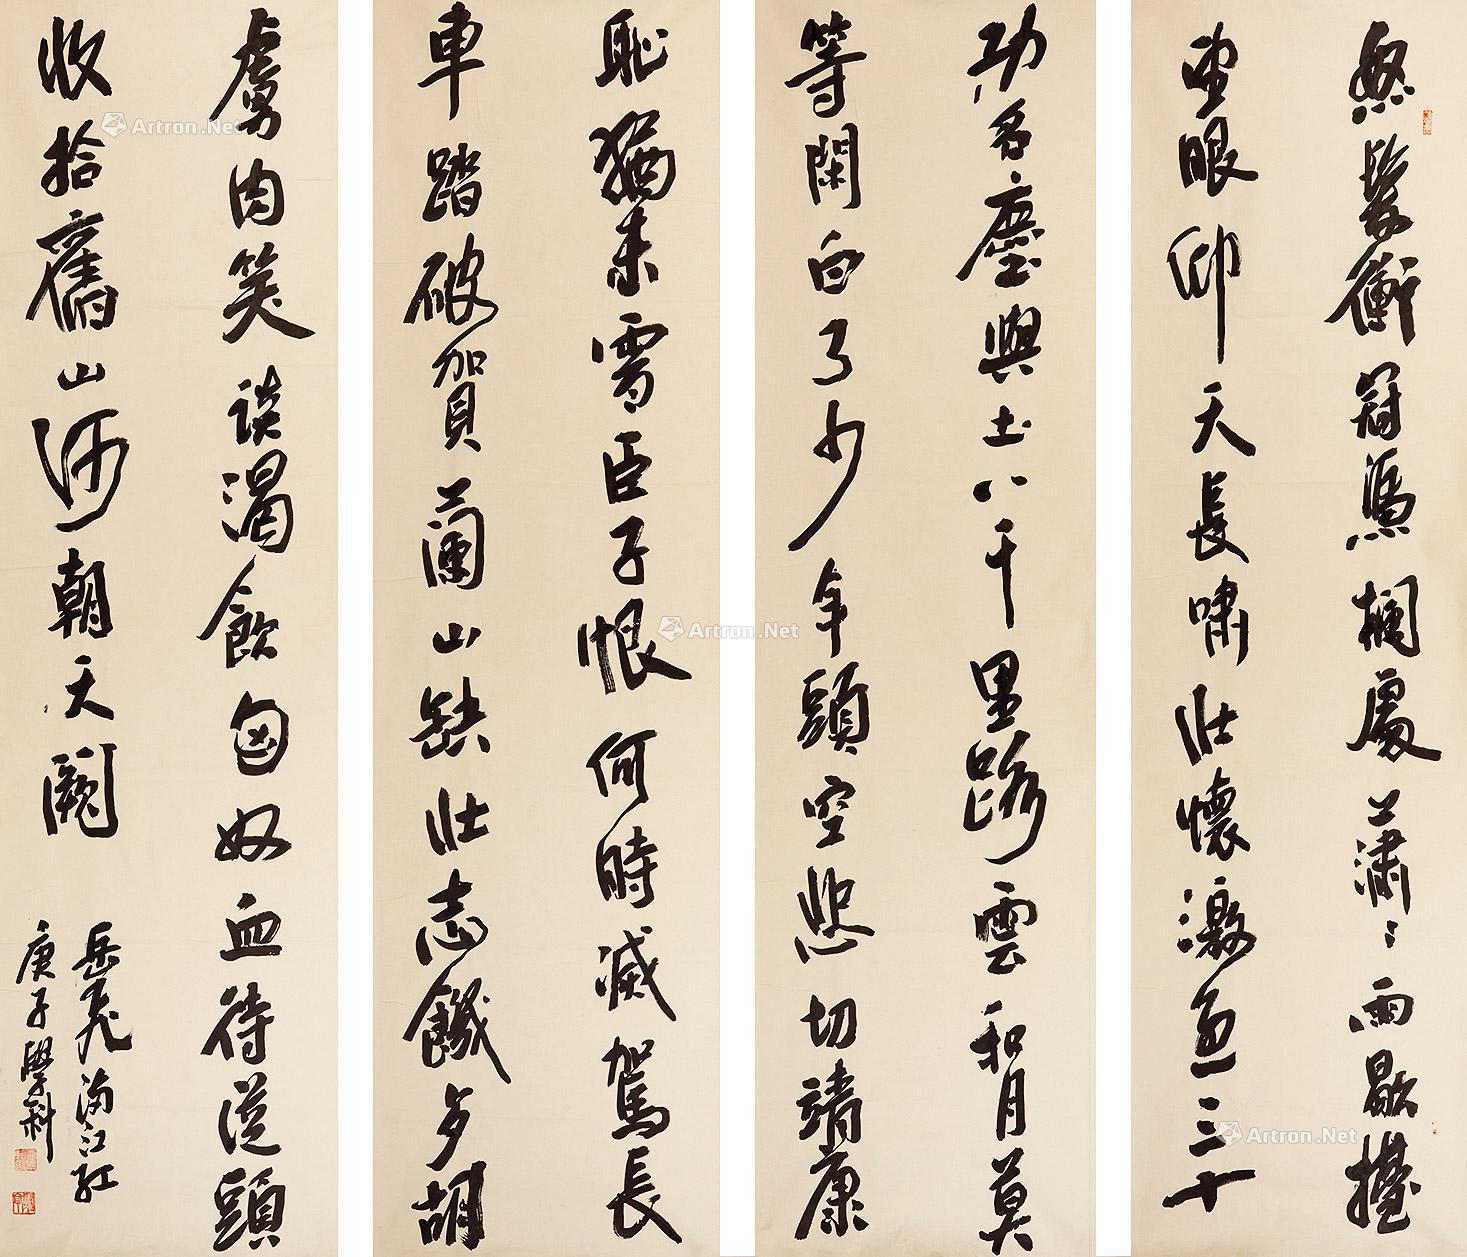 怒髮衝冠憑欄處瀟〻雨歇擡
望眼仰天長嘯壯懷激烈三十
功名塵與土八千里路雲和月莫
等閑白了少年頭空悲切靖康
恥猶未雪臣子恨何時滅駕長
車踏破賀蘭山缺壯志饑歺胡
虜肉笑談渴飲匈奴血待從頭
收拾舊山河朝天闕
岳飛滿江紅
庚子學科
Artron.Net
Artron.Net
Artron.Net